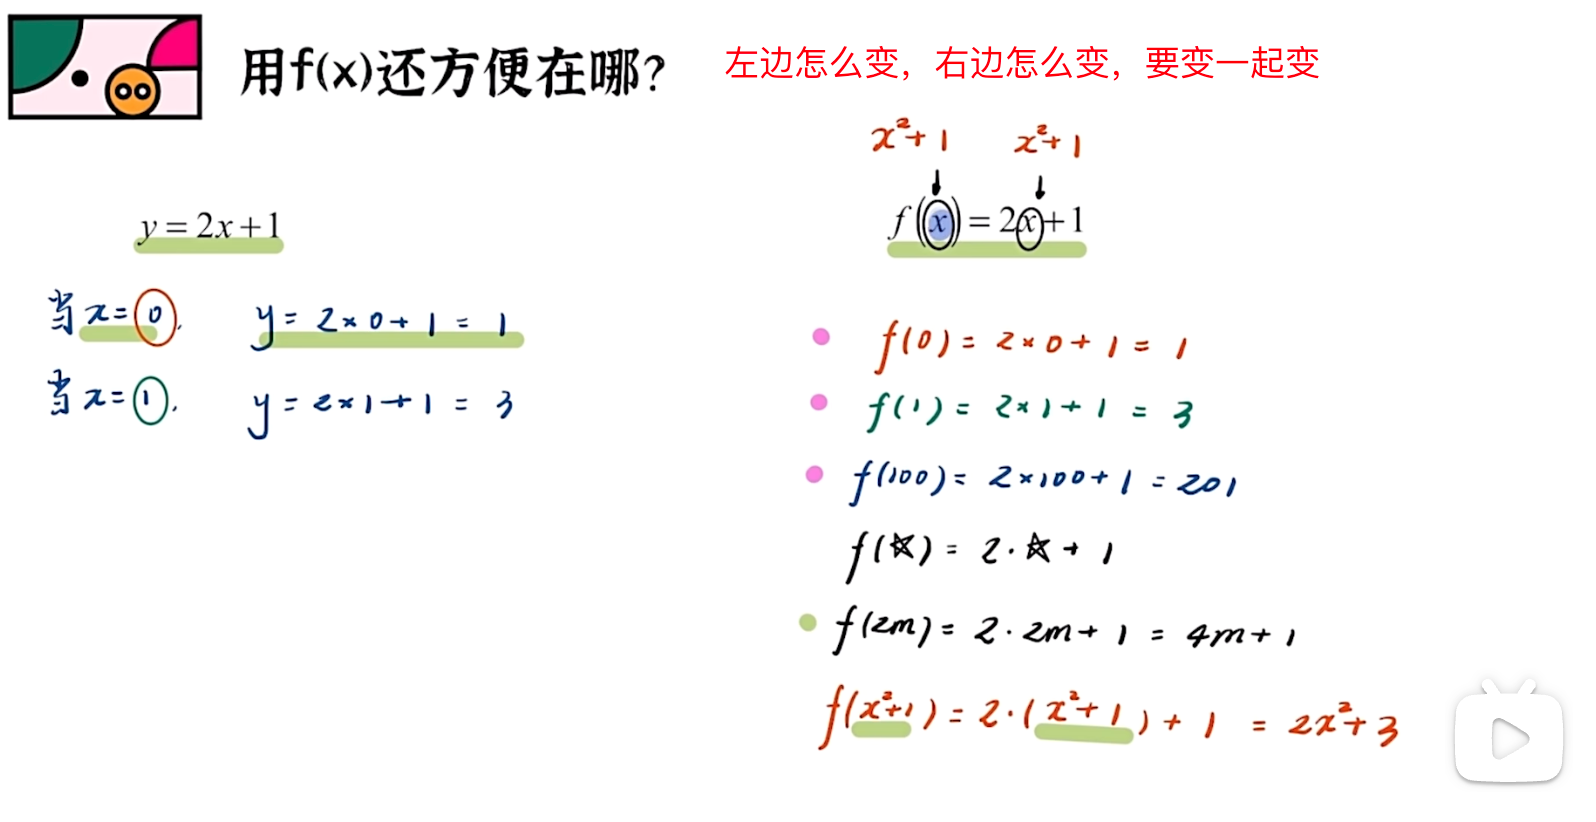 用f(x)还方便在哪?
左边怎么变，右边怎么变，要变一起变
y = 2x+1
当x=0, y= 2×0+1=1
当x=1, y=2×1+1=3
x²+1 x²+1
f(x)=2x+1
f(0)=2×0+1=1
f(1)=2×1+1=3
f(100)=2×100+1=201
f(☆)=2·☆+1
f(2m)=2·2m+1=4m+1
f(x²+1)=2·(x²+1)+1=2x²+3